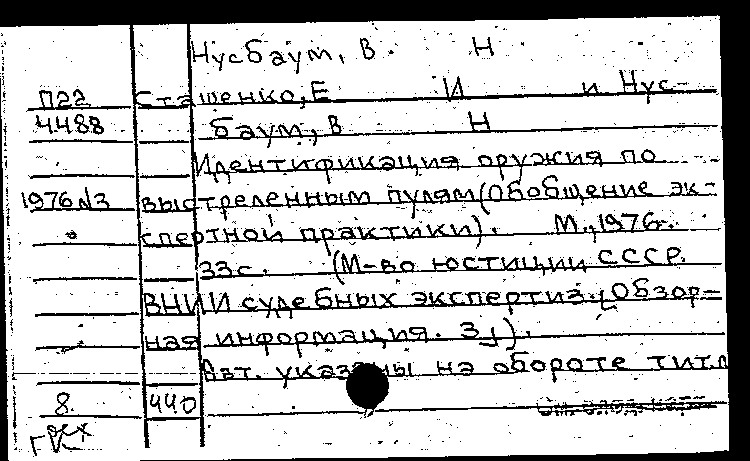 Нусбаум, В. Н
П22 Сташенко, Е И и Нус-
4488 баум, В Н
Идентификация оружия по
1976 N3 выстреленным пулям (Обобщение эк-
спертной практики). М., 1976.
33с. (М-во юстиции СССР.
ВНИИ судебных экспертиз. Обзор-
ная информация. 3).
Авт. указаны на обороте тит.л
8. 440
См. след. карт.